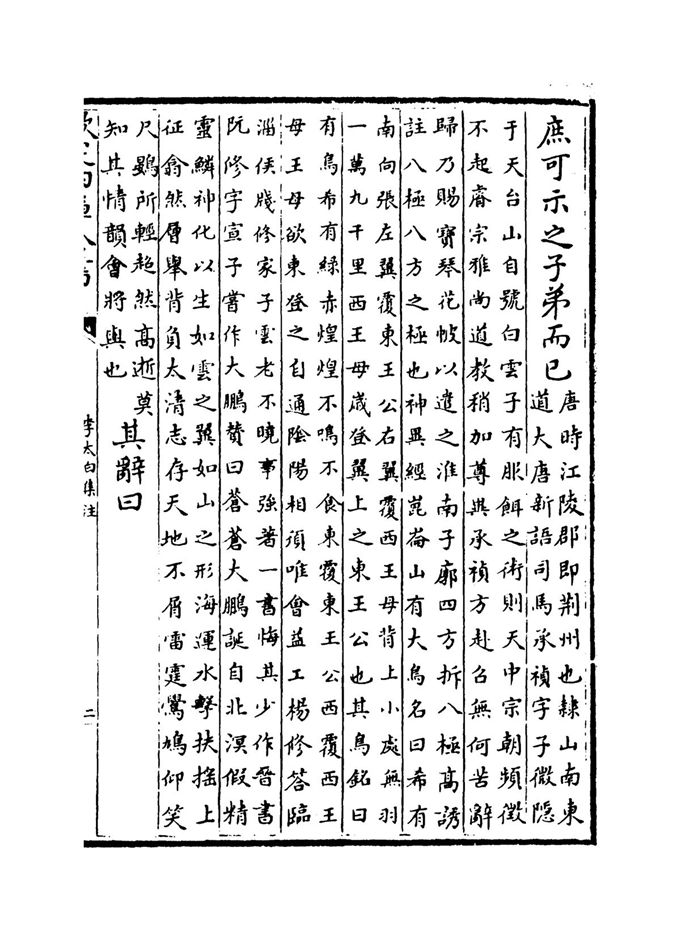 庶可示之子弟而已
唐時江陵郡即荆州也隸山南東
道大唐新語司馬承禎字子微隱
于天台山自號白雲子有服餌之術則天中宗朝頻徵
不起睿宗雅尚道教稍加尊異承禎方赴召無何苦辭
歸乃賜寶琴花帔以遣之淮南子廓四方拆八極髙誘
註八極八方之極也神異經崑崙山有大鳥名曰希有
南向張左翼覆東王公右翼覆西王母背上小處無羽
一萬九千里西王母歲登翼上之東王公也其鳥銘曰
有鳥希有綠赤煌煌不鳴不食東覆東王公西覆西王
母王母欲東登之自通隂陽相須唯會益工楊修答臨
淄侯牋修家子雲老不曉事強著一書悔其少作晉書
阮修字宣子嘗作大鵬贊曰蒼蒼大鵬誕自北溟假精
靈鱗神化以生如雲之翼如山之形海運水擊扶揺上
征翕然層舉背負太清志存天地不屑雷霆鸎鳩仰笑
尺鷃所輕超然髙逝莫
知其情韻會將與也
其辭曰
李太白集注
二